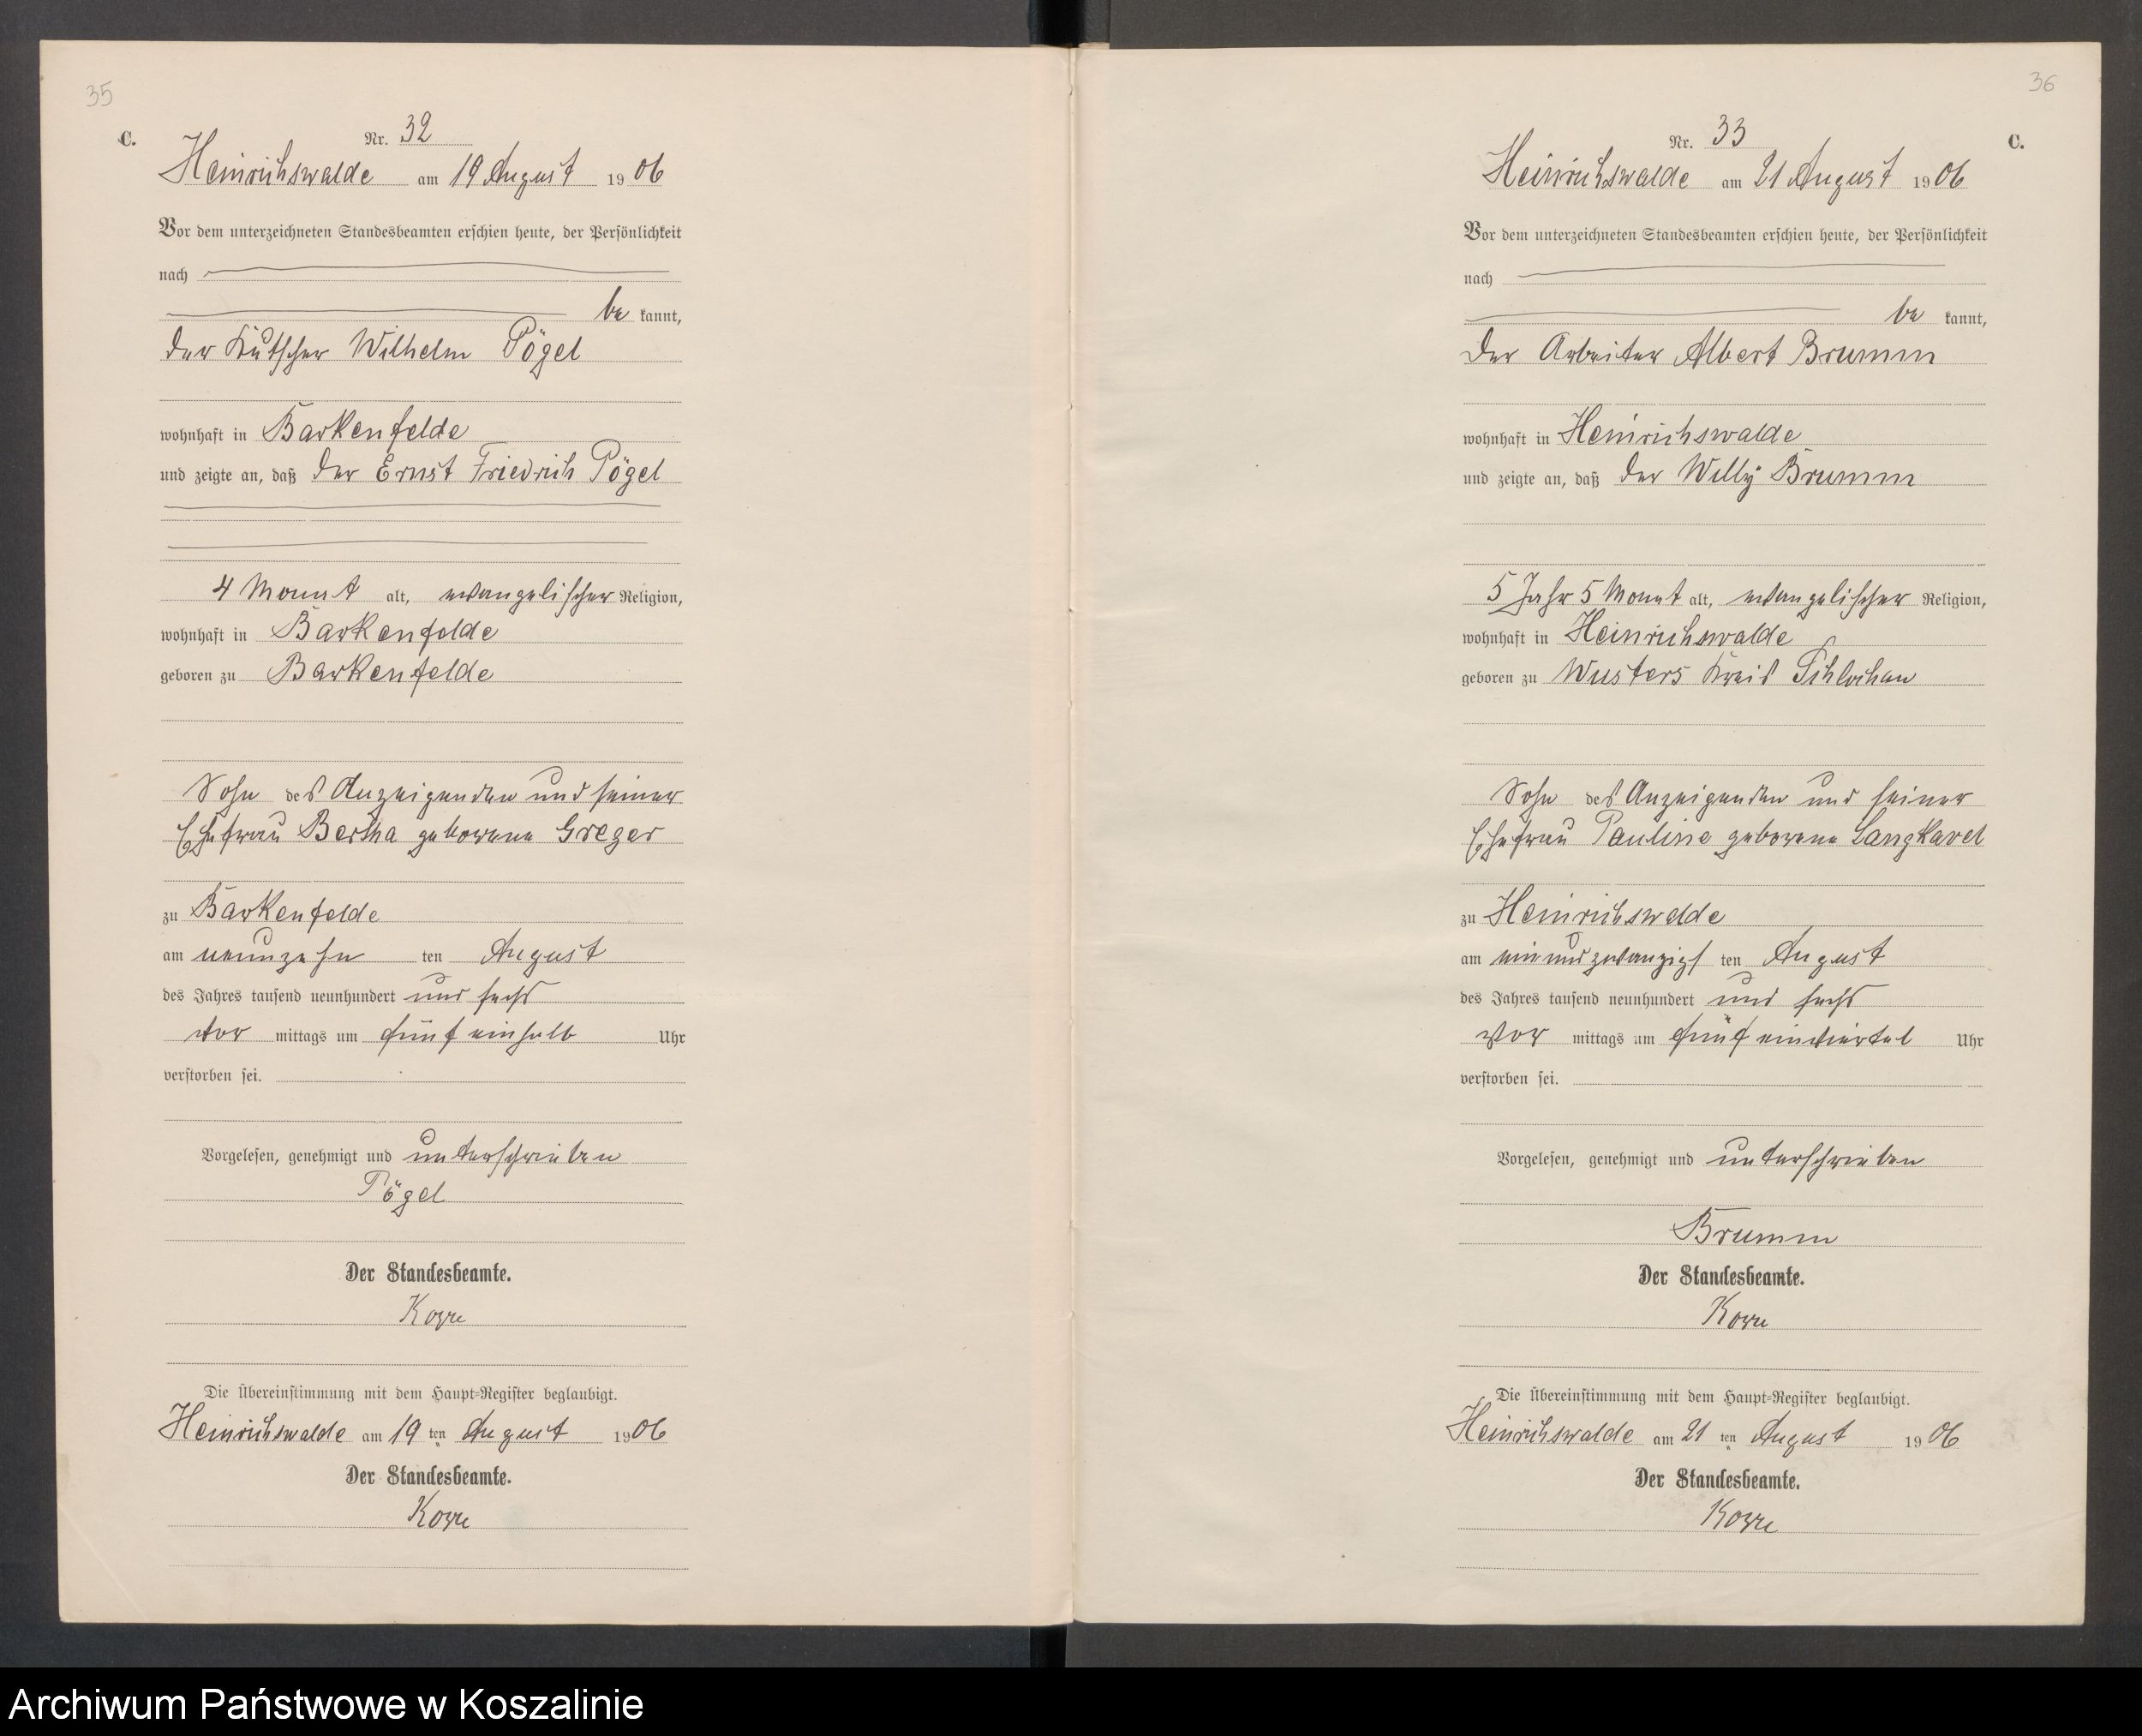 35
C.
Nr. 32
Heinrichswalde am 19 August 1906
Vor dem unterzeichneten Standesbeamten erschien heute, der Persönlichkeit
nach
be kannt,
der Kutscher Wilhelm Pögel
wohnhaft in Barkenfelde
und zeigte an, daß der Ernst Friedrich Pögel
4 Monat alt, evangelischer Religion,
wohnhaft in Barkenfelde
geboren zu Barkenfelde
Sohn des Anzeigenden und seiner
Ehefrau Bertha geborene Greger
zu Barkenfelde
am neunzehn ten August
des Jahres tausend neunhundert und sechs
vor mittags um fünf einhalb Uhr
verstorben sei.
Vorgelesen, genehmigt und unterschrieben
Pögel
Der Standesbeamte.
Die Übereinstimmung mit dem Haupt-Register beglaubigt.
Heinrichswalde am 19 ten August 1906
Der Standesbeamte.
36
C.
Nr. 33
Heinrichswalde am 21 August 1906
Vor dem unterzeichneten Standesbeamten erschien heute, der Persönlichkeit
nach
be kannt,
der Arbeiter Albert Brumm
wohnhaft in Heinrichswalde
und zeigte an, daß der Willy Brumm
5 Jahr 5 Monat alt, evangelischer Religion,
wohnhaft in Heinrichswalde
geboren zu Wusters Kreis Schlochau
Sohn des Anzeigenden und seiner
Ehefrau Pauline geborene Langkavel
zu Heinrichswalde
am einundzwanzigs ten August
des Jahres tausend neunhundert und sechs
Vor mittags um fünf einviertel Uhr
verstorben sei.
Vorgelesen, genehmigt und unterschrieben
Brumm
Der Standesbeamte.
Die Übereinstimmung mit dem Haupt-Register beglaubigt.
Heinrichswalde am 21 ten August 1906
Der Standesbeamte.
Archiwum Państwowe w Koszalinie